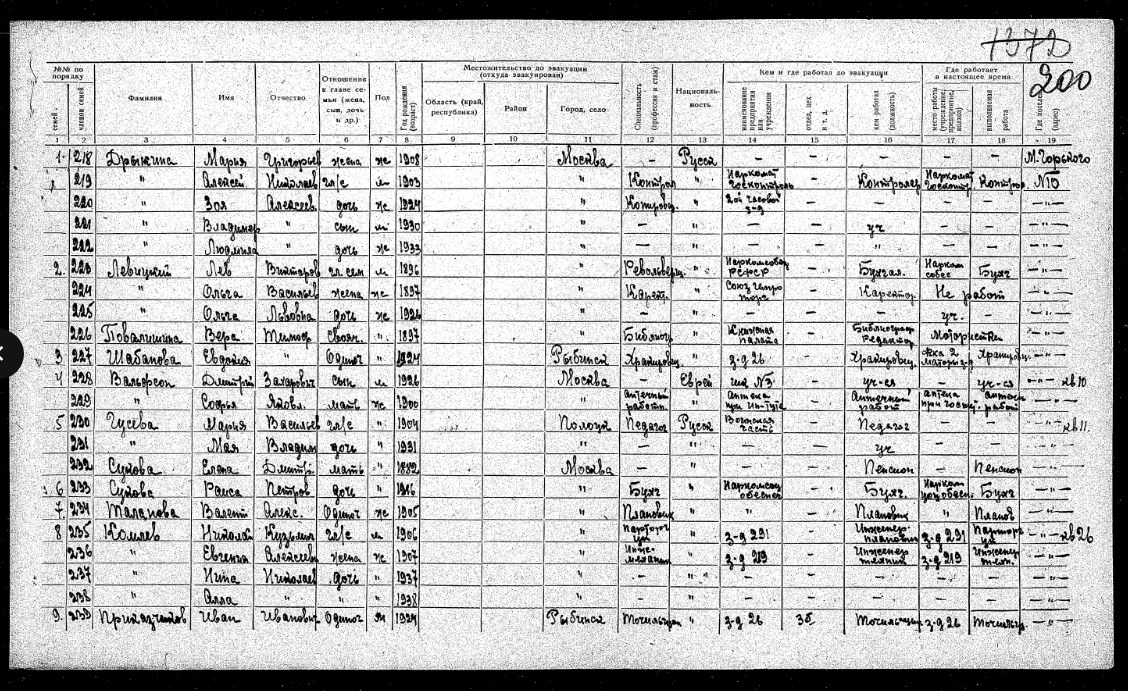 1372
200
№№ по порядку Фамилия Имя Отчество Отношение к главе семьи (жена, сын, дочь и др.) Пол Год рождения (возраст) Местожительство до эвакуации (откуда эвакуирован) Специальность (профессия и стаж) Националь-ность Кем и где работал до эвакуации Где работает в настоящее время Где поселен (адрес)
семей членов семей Область (край, республика) Район Город, село наименование предприятия или учреждения отдел, цех и т. д. кем работал (должность) место работы (учреждение, предприятие, колхоз) выполняемая работа
1 2 3 4 5 6 7 8 9 10 11 12 13 14 15 16 17 18 19
1. 218 Дрыкина Мария Григорьев жена ж 1908 Москва — Русск — — — — — М. Горького
219 " Алексей Николаев гл/с м 1903 " Контрол " Наркомат Госконтроль — Контролер Наркомат Госконтр Контрол №15
220 " Зоя Алексеев дочь ж 1924 " " 2ой Часовой з-д — — — — — " —
221 " Владимир " сын м 1930 " — " — — уч — — — " —
222 " Людмила " дочь ж 1933 " — " — — " — — — " —
2. 223 Левицкий Лев Викторов гл. сем м 1896 " " РСФСР — Бухгал. Нарком собес Бухг — " —
224 " Ольга Васильев жена ж 1897 " " — Не работ — " —
225 " Ольга Львовна дочь ж 1926 " — " — — — уч. — — " —
226 Вера " 1897 " " Книжная палата — Библиограф редактор — " —
3 227 Шабанова Евдокия " Одиноч " 1924 Рыбинск " з-д 26 — — " —
4 228 Вальфсон Дмитрий Захарович сын м 1926 Москва — Еврей шк №3 — уч-ся — уч-ся — " — кв 10
229 " Софья Яковл. мать ж 1900 " Аптечн работн. " Аптека при Ин-туте — Аптечный работ аптека аптечн работ — " —
5 230 Гусева Мария Васильев гл/с " 1904 Полоцк Педагог Русск Воинская часть — Педагог — — — " — кв 11.
231 " Мая Владим дочь " 1931 " — " — — уч — — — " —
232 Сукова Елена Дмитр. мать " 1882 Москва — " — — Пенсион — Пенсион — " —
6 233 Сукова Раиса Петров дочь " 1916 " Бухг " — Бухг. Бухг — " —
7 234 Таланова Валент Алекс. Одиноч ж 1905 " Плановик " " — Плановик " Планов — " —
8 235 Комлев Николай Кузьмич гл/с м 1906 " Парторг " з-д 291 — Инженер-плановик з-д 291 Парторг — " — кв 26
236 " Евгения Алексеев жена ж 1907 " " з-д 219 — Инженер з-д 219 Инженер — " —
237 " Нина Николаев дочь " 1937 " — " — — — — — — " —
238 " Алла " " " 1938 " — " — — — — — — " —
9. 239 Приказчиков Иван Иванович Одиноч м 1924 Рыбинск Точильщик " з-д 26 35 Точильщик з-д 26 Точильщ. — " —